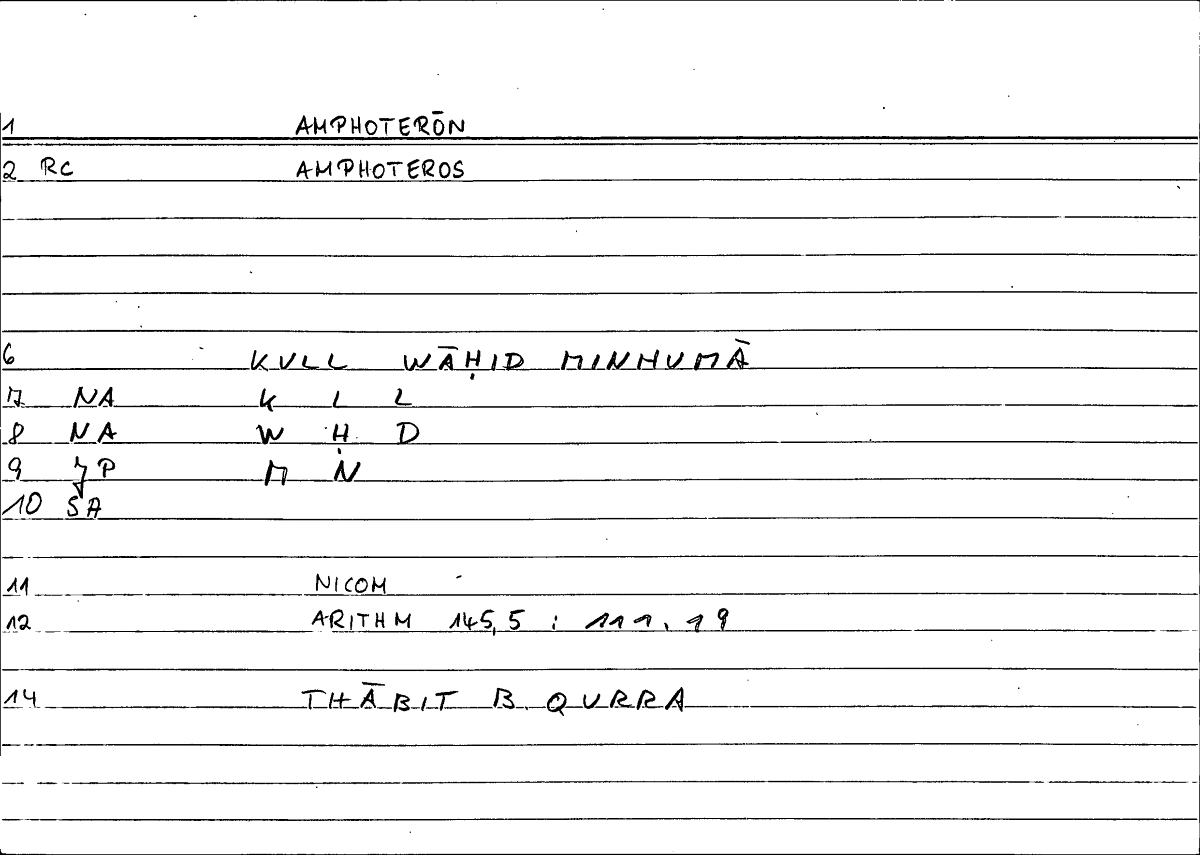 1 AMPHOTERŌN
2 RC AMPHOTEROS
6 KULL WĀḤID MINHUMĀ
7 NA K L L
8 NA W Ḥ D
9 JP M N
10 SA
11 NICOM
12 ARITHM 145,5 : 111.19
14 THĀBIT B. QURRA